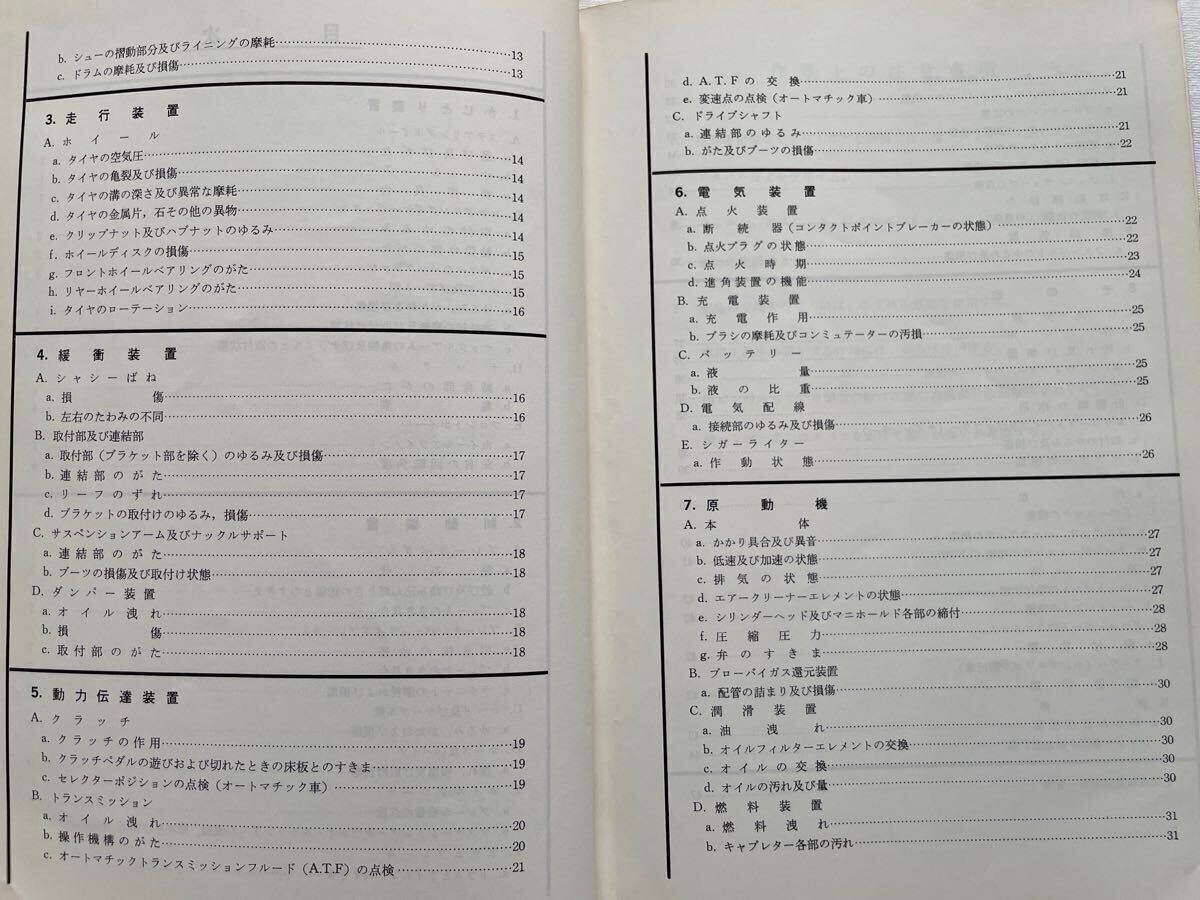 b. シューの摺動部分及びライニングの摩耗…13
c. ドラムの摩耗及び損傷…13
3. 走行装置
A. ホイール
a. タイヤの空気圧…14
b. タイヤの亀裂及び損傷…14
c. タイヤの溝の深さ及び異常な摩耗…14
d. タイヤの金属片，石その他の異物…14
e. クリップナット及びハブナットのゆるみ…14
f. ホイールディスクの損傷…15
g. フロントホイールベアリングのがた…15
h. リヤーホイールベアリングのがた…15
i. タイヤのローテーション…16
4. 緩衝装置
A. シャシーばね
a. 損傷…16
b. 左右のたわみの不同…16
B. 取付部及び連結部
a. 取付部（ブラケット部を除く）のゆるみ及び損傷…17
b. 連結部のがた…17
c. リーフのずれ…17
d. ブラケットの取付けのゆるみ，損傷…17
C. サスペンションアーム及びナックルサポート
a. 連結部のがた…18
b. ブーツの損傷及び取付け状態…18
D. ダンパー装置
a. オイル洩れ…18
b. 損傷…18
c. 取付部のがた…18
5. 動力伝達装置
A. クラッチ
a. クラッチの作用…19
b. クラッチペダルの遊びおよび切れたときの床板とのすきま…19
c. セレクターポジションの点検（オートマチック車）…19
B. トランスミッション
a. オイル洩れ…20
b. 操作機構のがた…20
c. オートマチックトランスミッションフルード（A.T.F）の点検…21
d. A.T.Fの交換…21
e. 変速点の点検（オートマチック車）…21
C. ドライブシャフト
a. 連結部のゆるみ…21
b. がた及びブーツの損傷…22
6. 電気装置
A. 点火装置
a. 断続器（コンタクトポイントブレーカーの状態）…22
b. 点火プラグの状態…22
c. 点火時期…23
d. 進角装置の機能…24
B. 充電装置
a. 充電作用…25
b. ブラシの摩耗及びコンミュテーターの汚損…25
C. バッテリー
a. 液量…25
b. 液の比重…25
D. 電気配線
a. 接続部のゆるみ及び損傷…26
E. シガーライター
a. 作動状態…26
7. 原動機
A. 本体
a. かかり具合及び異音…27
b. 低速及び加速の状態…27
c. 排気の状態…27
d. エアークリーナーエレメントの状態…27
e. シリンダーヘッド及びマニホールド各部の締付…28
f. 圧縮圧力…28
g. 弁のすきま…28
B. ブローバイガス還元装置
a. 配管の詰まり及び損傷…30
C. 潤滑装置
a. 油洩れ…30
b. オイルフィルターエレメントの交換…30
c. オイルの交換…30
d. オイルの汚れ及び量…30
D. 燃料装置
a. 燃料洩れ…31
b. キャブレター各部の汚れ…31